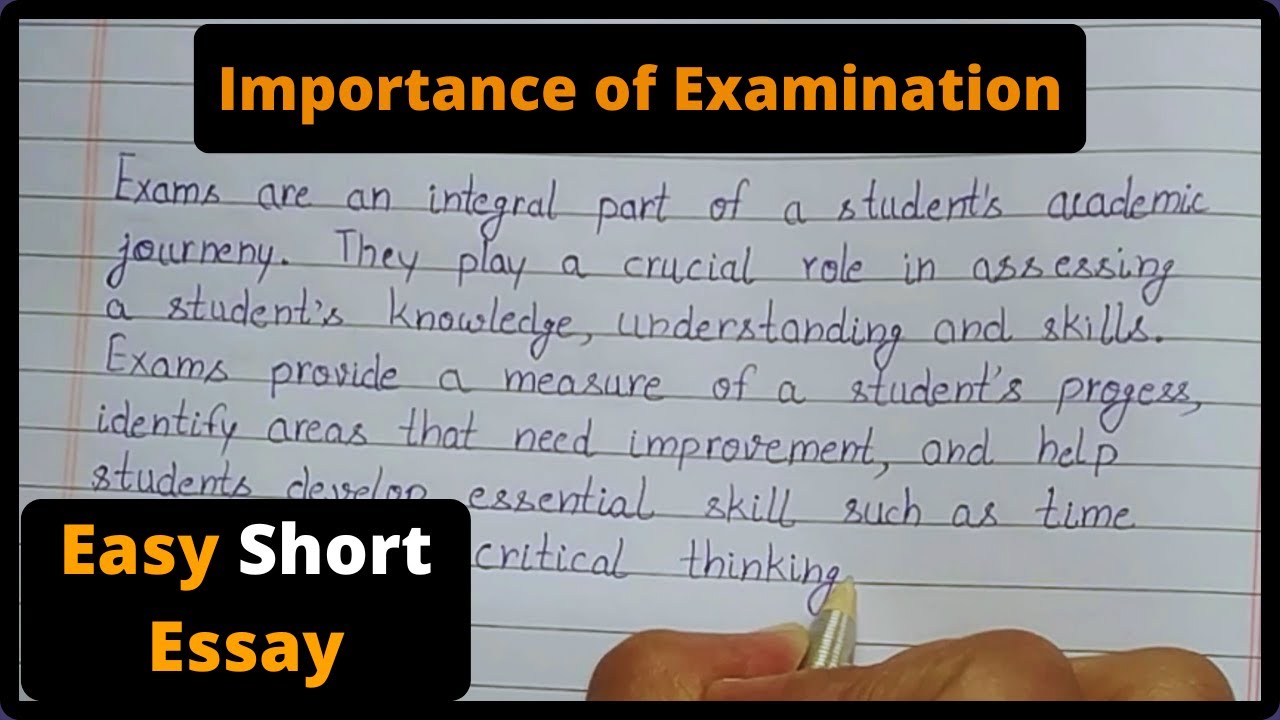 Importance of Examination
Exams are an integral part of a student's academic
journeny. They play a crucial role in assessing
a student's knowledge, understanding and skills.
Exams provide a measure of a student's progess,
identify areas that need improvement, and help
students develop essential skill such as time
critical thinking
Easy Short
Essay